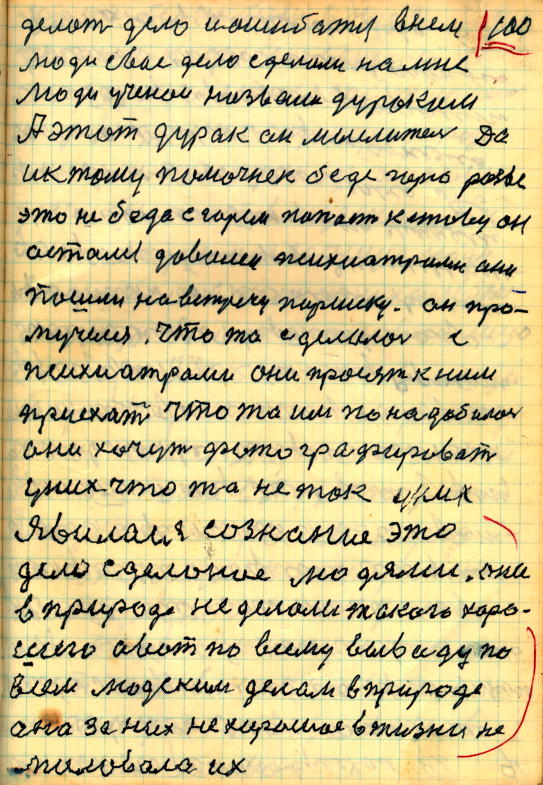 делоть дело и ошибатя внем 100
люди свае дело сделали на мне
люди учонои назвали дураким
А этот дурак он мыслител Да
и к тому помочнек беде горо разве
это не беда с горем попаст к етому он
осталя доволен психиатрами они
пошли на встречу паршеку. он про-
мучеля. что та сделалос с
психиатрами они просят к ним
приехат что та им по на добилос
они хочут фотографироват
у них что та не так у них
явилася сознание это
дело сделоное людями. она
в природе не делоли такого хоро-
шего авот по всему вываду по
всем людским делам в природе
она за них не хорошое в жизни не
миловала их